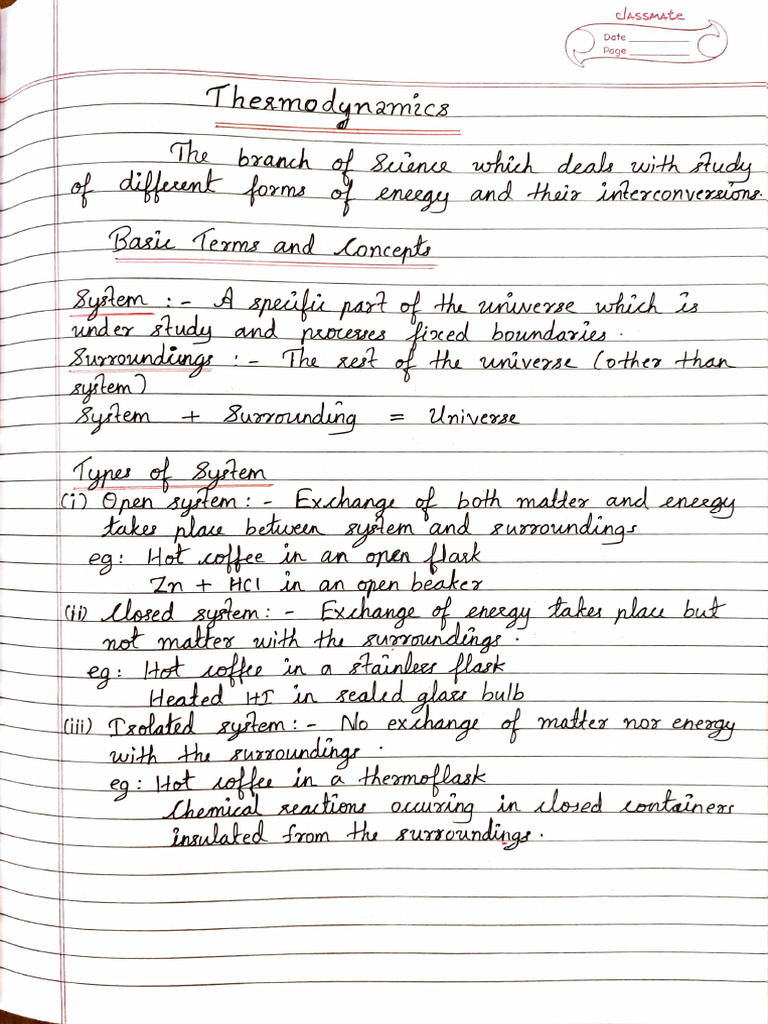 classmate
Date
Page
Thermodynamics
The branch of Science which deals with study
of different forms of energy and their interconversions.
Basic Terms and Concepts
System :- A specific part of the universe which is
under study and processes fixed boundaries.
Surroundings :- The rest of the universe (other than
system)
System + Surrounding = Universe
Types of System
(i) Open system :- Exchange of both matter and energy
takes place between system and surroundings
eg: Hot coffee in an open flask
Zn + HCl in an open beaker
(ii) Closed system :- Exchange of energy takes place but
not matter with the surroundings.
eg: Hot coffee in a stainless flask
Heated HI in sealed glass bulb
(iii) Isolated system :- No exchange of matter nor energy
with the surroundings.
eg: Hot coffee in a thermoflask
Chemical reactions occuring in closed containers
insulated from the surroundings.